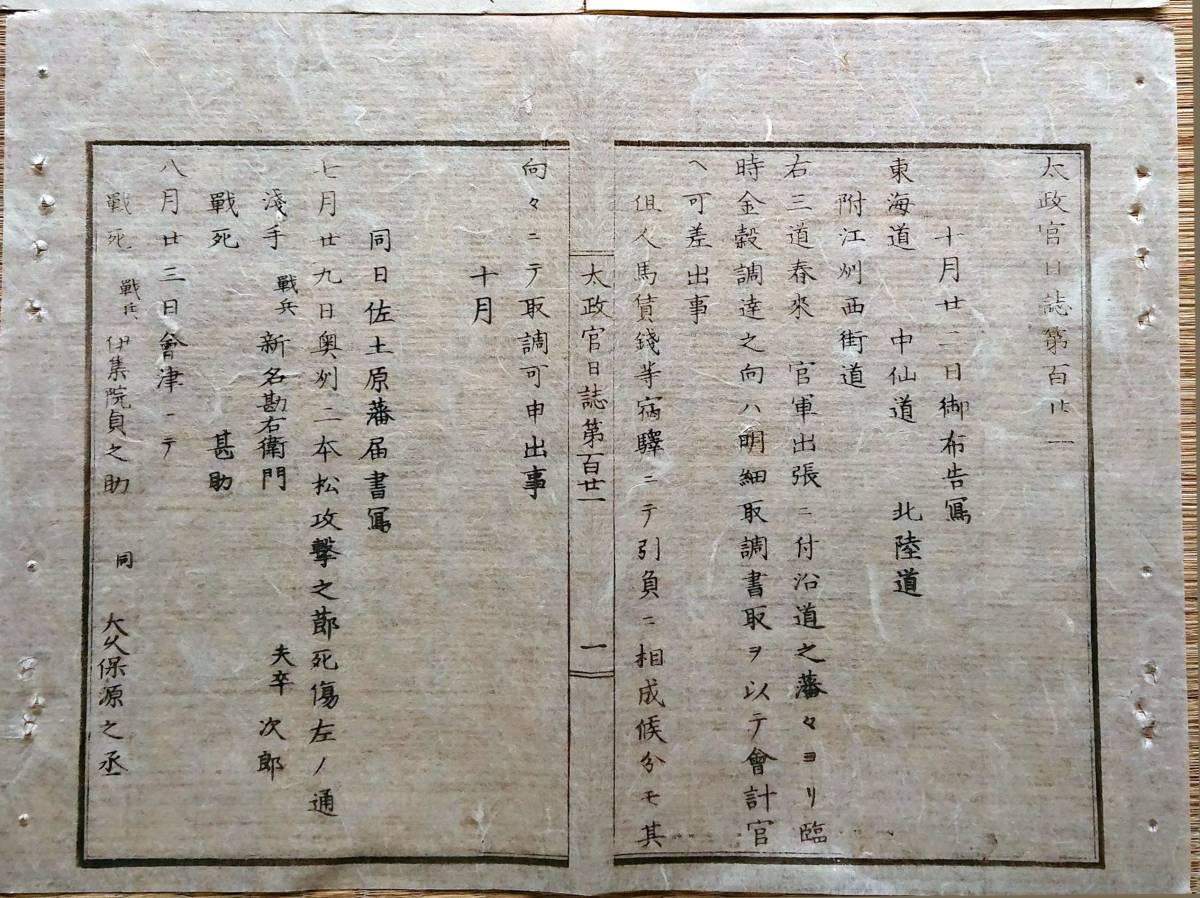 太政官日誌第百廿一
十月廿二日御布告寫
東海道　中仙道　北陸道
附江刕西街道
右三道春來　官軍出張ニ付沿道之藩々ヨリ臨
時金穀調達之向ハ明細取調書取ヲ以テ會計官
ヘ可差出事
但人馬賃錢等宿驛ニテ引負ニ相成候分モ其
太政官日誌第百廿一　一
向々ニテ取調可申出事
十月
同日佐土原藩届書寫
七月廿九日奥刕二本松攻擊之節死傷左ノ通
淺手　戰兵　新名勘右衛門　夫卒　次郎
戰死　甚助
八月廿三日會津ニテ
戰死　戰兵　伊集院貞之助　同　大久保源之丞